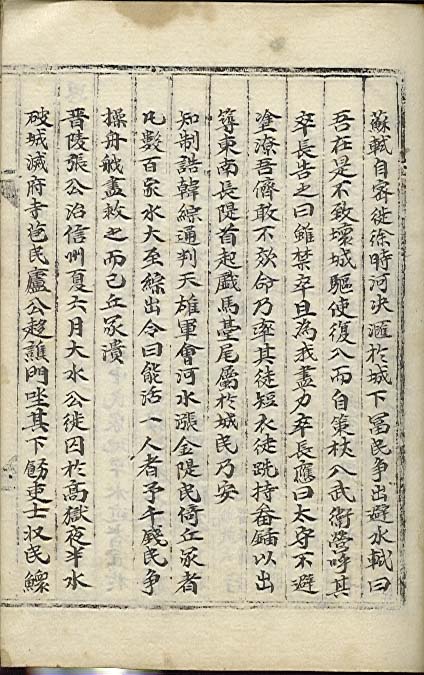 蘇軾自客徙徐時河决滙於城下冨民争出避水軾曰
吾在是不致壞城驅使復入而自策杖入武衛營呼其
卒長告之曰雖禁卒且為我盡力卒長應曰太守不避
塗潦吾儕敢不效命乃率其徒短衣徒跣持畚鍤以出
築東南長隄首起戲馬臺尾屬於城民乃安
知制誥韓綜通判天雄軍會河水漲金隄民倚丘冢者
凡數百家水大至綜出令曰能活一人者予千錢民争
操舟栰盡救之而已丘冢潰
晋陵張公治信州夏六月大水公徙囚於高獄夜半水
破城滅府寺苞民廬公趍譙門坐其下勅吏士収民鰥